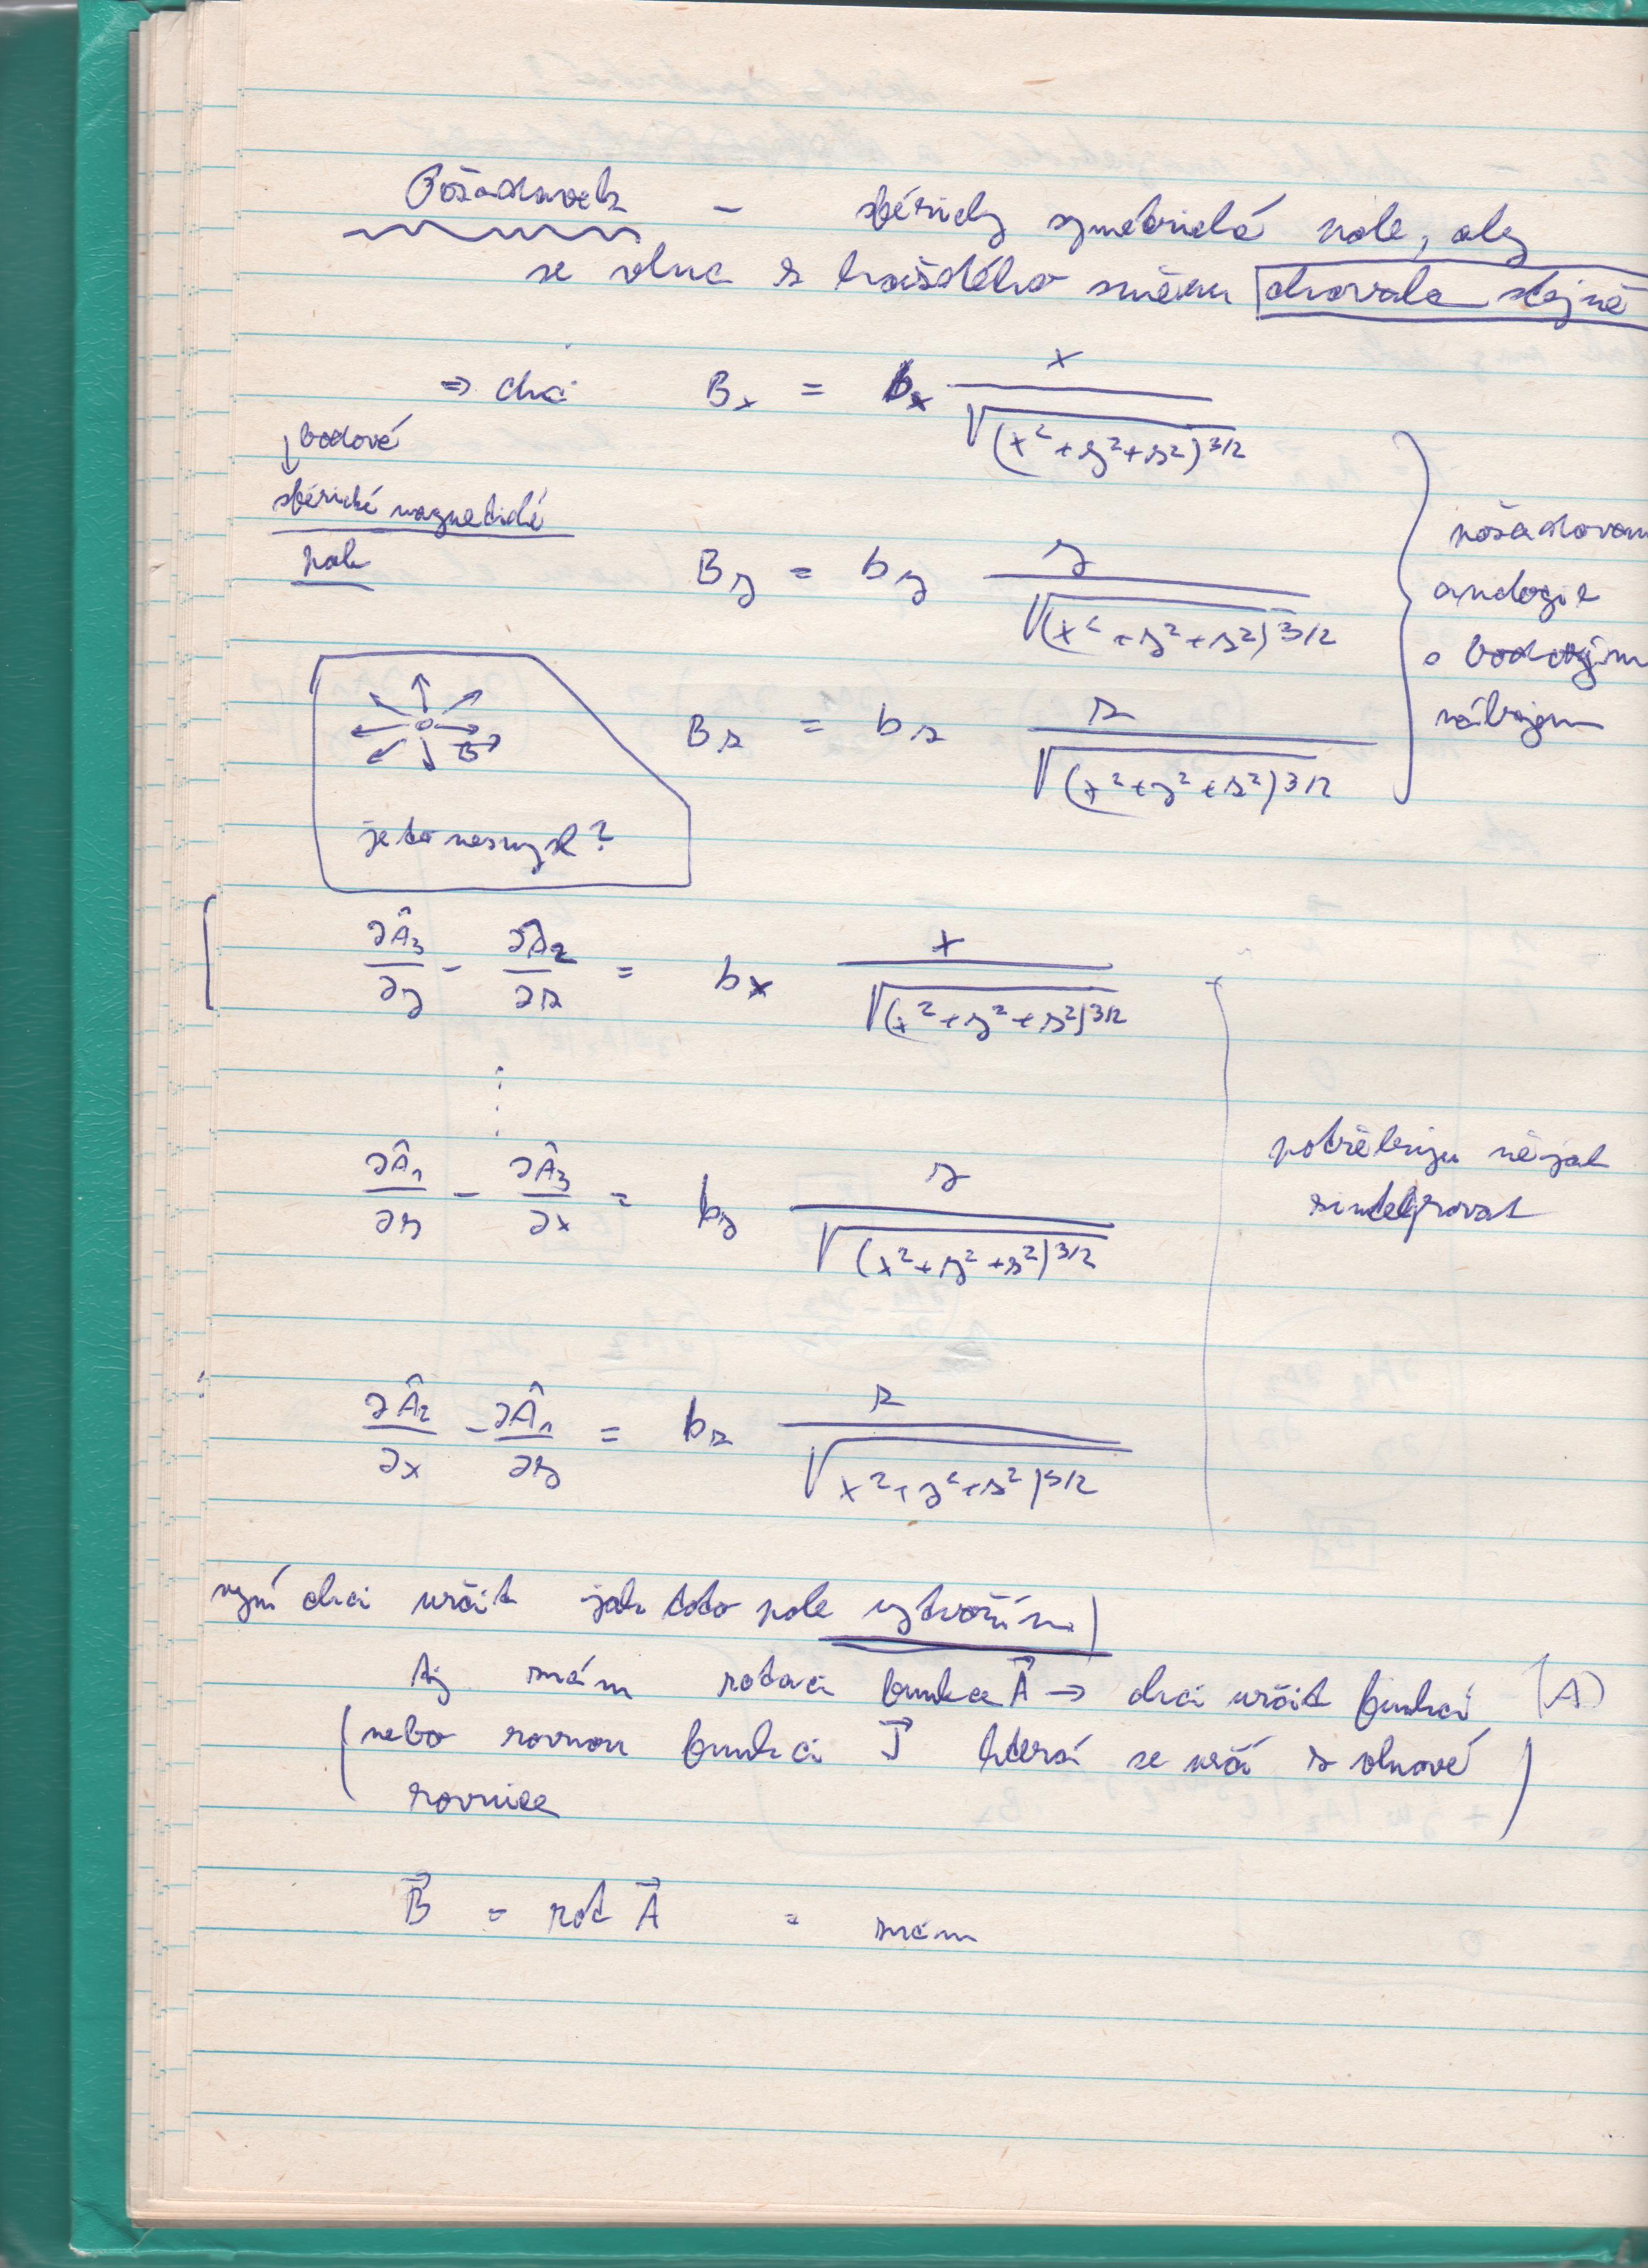 Požadavek – sféricky symetrické pole, aby
se vlna z každého směru chovala stejně
⇒ chci B_x = b_x x / √(x²+y²+z²)^3/2
↓ bodové
sférické magnetické
pole
B_y = b_y y / √(x²+y²+z²)^3/2
B_z = b_z z / √(x²+y²+z²)^3/2
analogie
s bodovým
nábojem
B→
je to nesmysl?
∂Â₃/∂y − ∂Â₂/∂z = b_x x / √(x²+y²+z²)^3/2
⋮
∂Â₁/∂z − ∂Â₃/∂x = b_y y / √(x²+y²+z²)^3/2
potřebuju nějak
zintegrovat
∂Â₂/∂x − ∂Â₁/∂y = b_z z / √x²+y²+z²)^3/2
nyní chci určit jak toto pole vytvořím
Aj znám rotaci funkce A→ → chci určit funkci (A)
(nebo rovnou funkci J→ která se určí z vlnové
rovnice)
B→ = rot A→ = znám